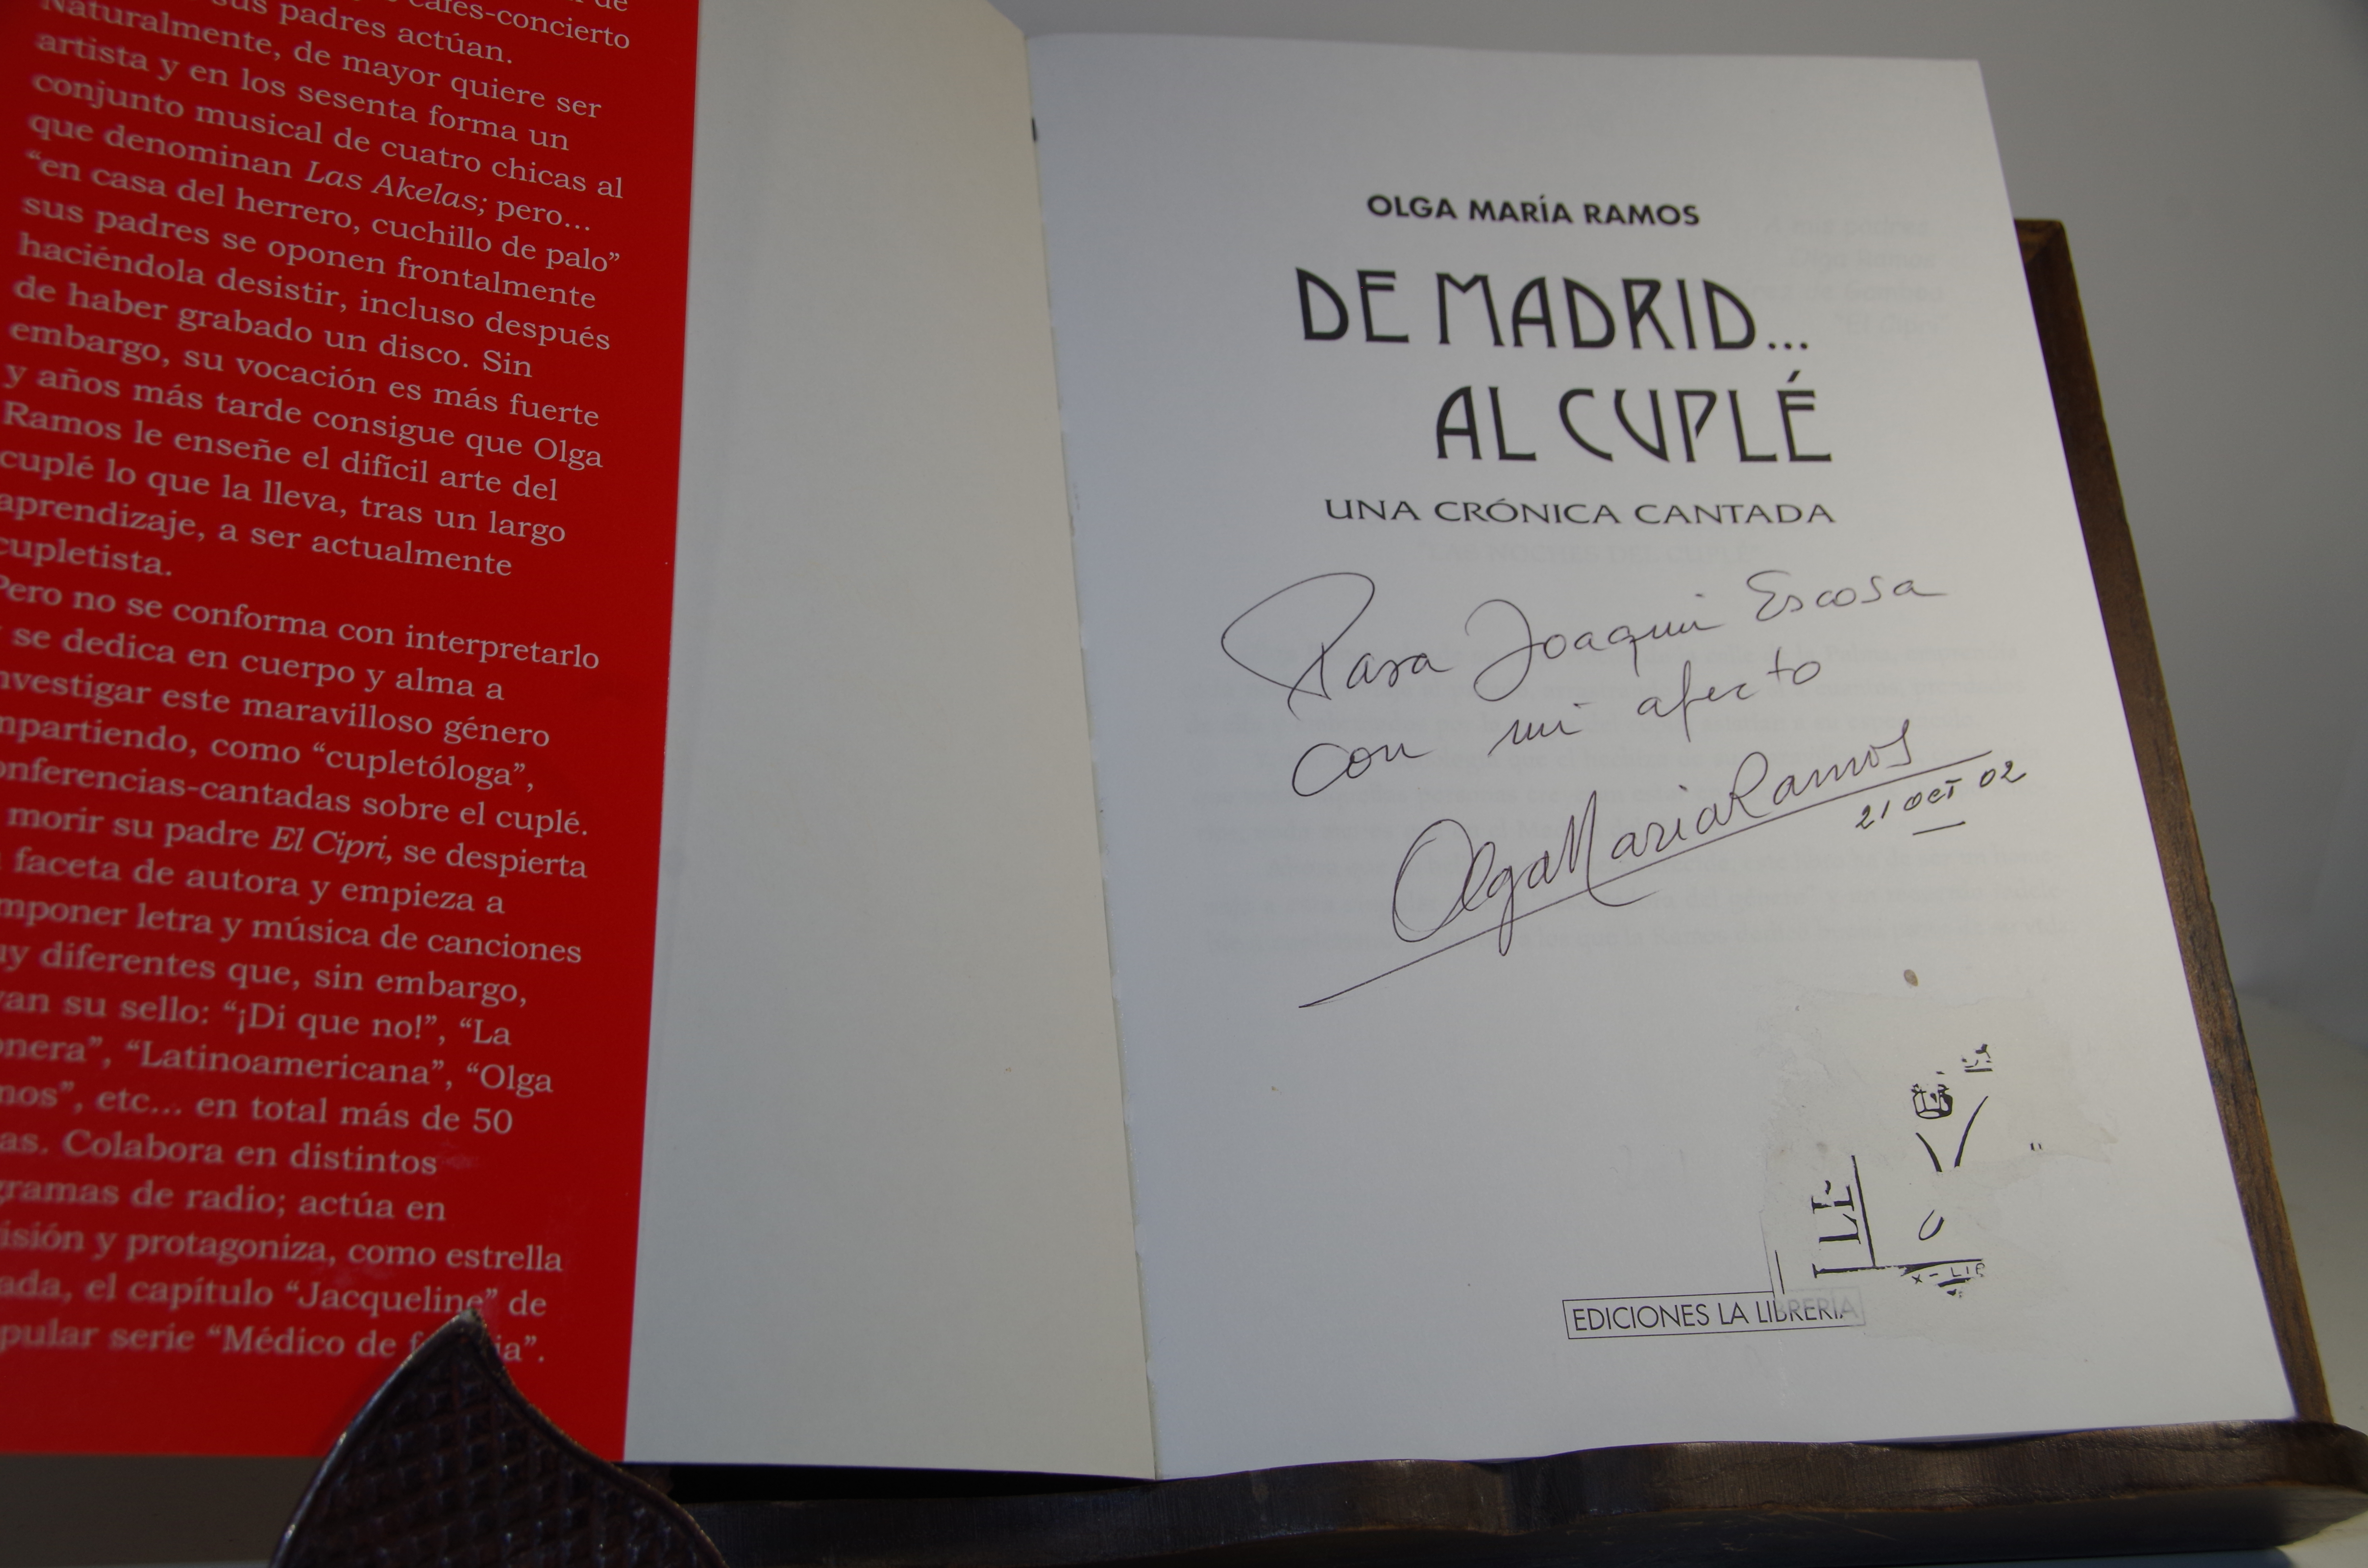 cafés-concierto
sus padres actúan.
Naturalmente, de mayor quiere ser
artista y en los sesenta forma un
conjunto musical de cuatro chicas al
que denominan Las Akelas; pero...
“en casa del herrero, cuchillo de palo”
sus padres se oponen frontalmente
haciéndola desistir, incluso después
de haber grabado un disco. Sin
embargo, su vocación es más fuerte
y años más tarde consigue que Olga
Ramos le enseñe el difícil arte del
cuplé lo que la lleva, tras un largo
aprendizaje, a ser actualmente
cupletista.
Pero no se conforma con interpretarlo
y se dedica en cuerpo y alma a
nvestigar este maravilloso género
mpartiendo, como “cupletóloga”,
onferencias-cantadas sobre el cuplé.
morir su padre El Cipri, se despierta
faceta de autora y empieza a
mponer letra y música de canciones
uy diferentes que, sin embargo,
van su sello: “¡Di que no!”, “La
onera”, “Latinoamericana”, “Olga
mos”, etc... en total más de 50
as. Colabora en distintos
gramas de radio; actúa en
isión y protagoniza, como estrella
ada, el capítulo “Jacqueline” de
pular serie “Médico de f ia”.
OLGA MARÍA RAMOS
DE MADRID...
AL CUPLÉ
UNA CRÓNICA CANTADA
Para Joaquin Escosa
con mi afecto
Olga Maria Ramos
21 OCT 02
EDICIONES LA LIBRERÍA